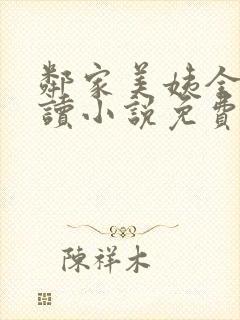 鄰家美姨全
讀小説免費
陳祥木